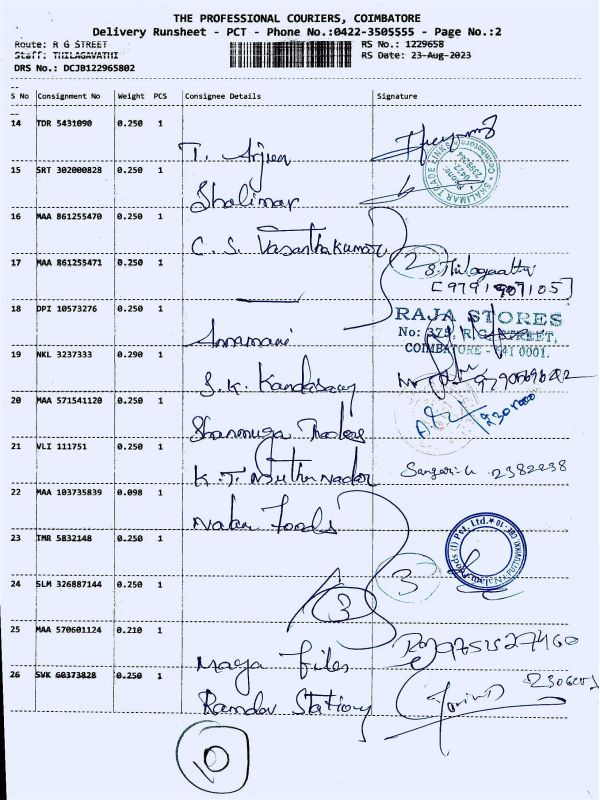 THE PROFESSIONAL COURIERS, COIMBATORE
Delivery Runsheet - PCT - Phone No.:0422-3505555 - Page No.:2
Route: R G STREET RS No.: 1229658
Staff: THILAGAVATHI RS Date: 23-Aug-2023
DRS No.: DCJB122965802
S No Consignment No Weight PCS Consignee Details Signature
14 TDR 5431090 0.250 1
T. Arjun
15 SRT 302000828 0.250 1
Shalimar
SHALIMAR TRADE LINKS
16 MAA 861255470 0.250 1
C. S. Vasanthakumar
17 MAA 861255471 0.250 1
2
S. Thilagaatty
[9791907105]
18 DPI 10573276 0.250 1
Annamani
RAJA STORES
No: 375, R.G. STREET,
COIMBATORE - 641 0001.
19 NKL 3237333 0.290 1
S.K. Kandasamy
20 MAA 571541120 0.250 1
Shanmuga Traders
21 VLI 111751 0.250 1
K. T. Muthu Nadar
2382238
22 MAA 103735839 0.098 1
Natar Foods
23 TMR 5832148 0.250 1
24 SLM 326887144 0.250 1
3 3
25 MAA 570601124 0.210 1
Maga Files
26 SVK 60373828 0.250 1
Ramdev Stationy
10